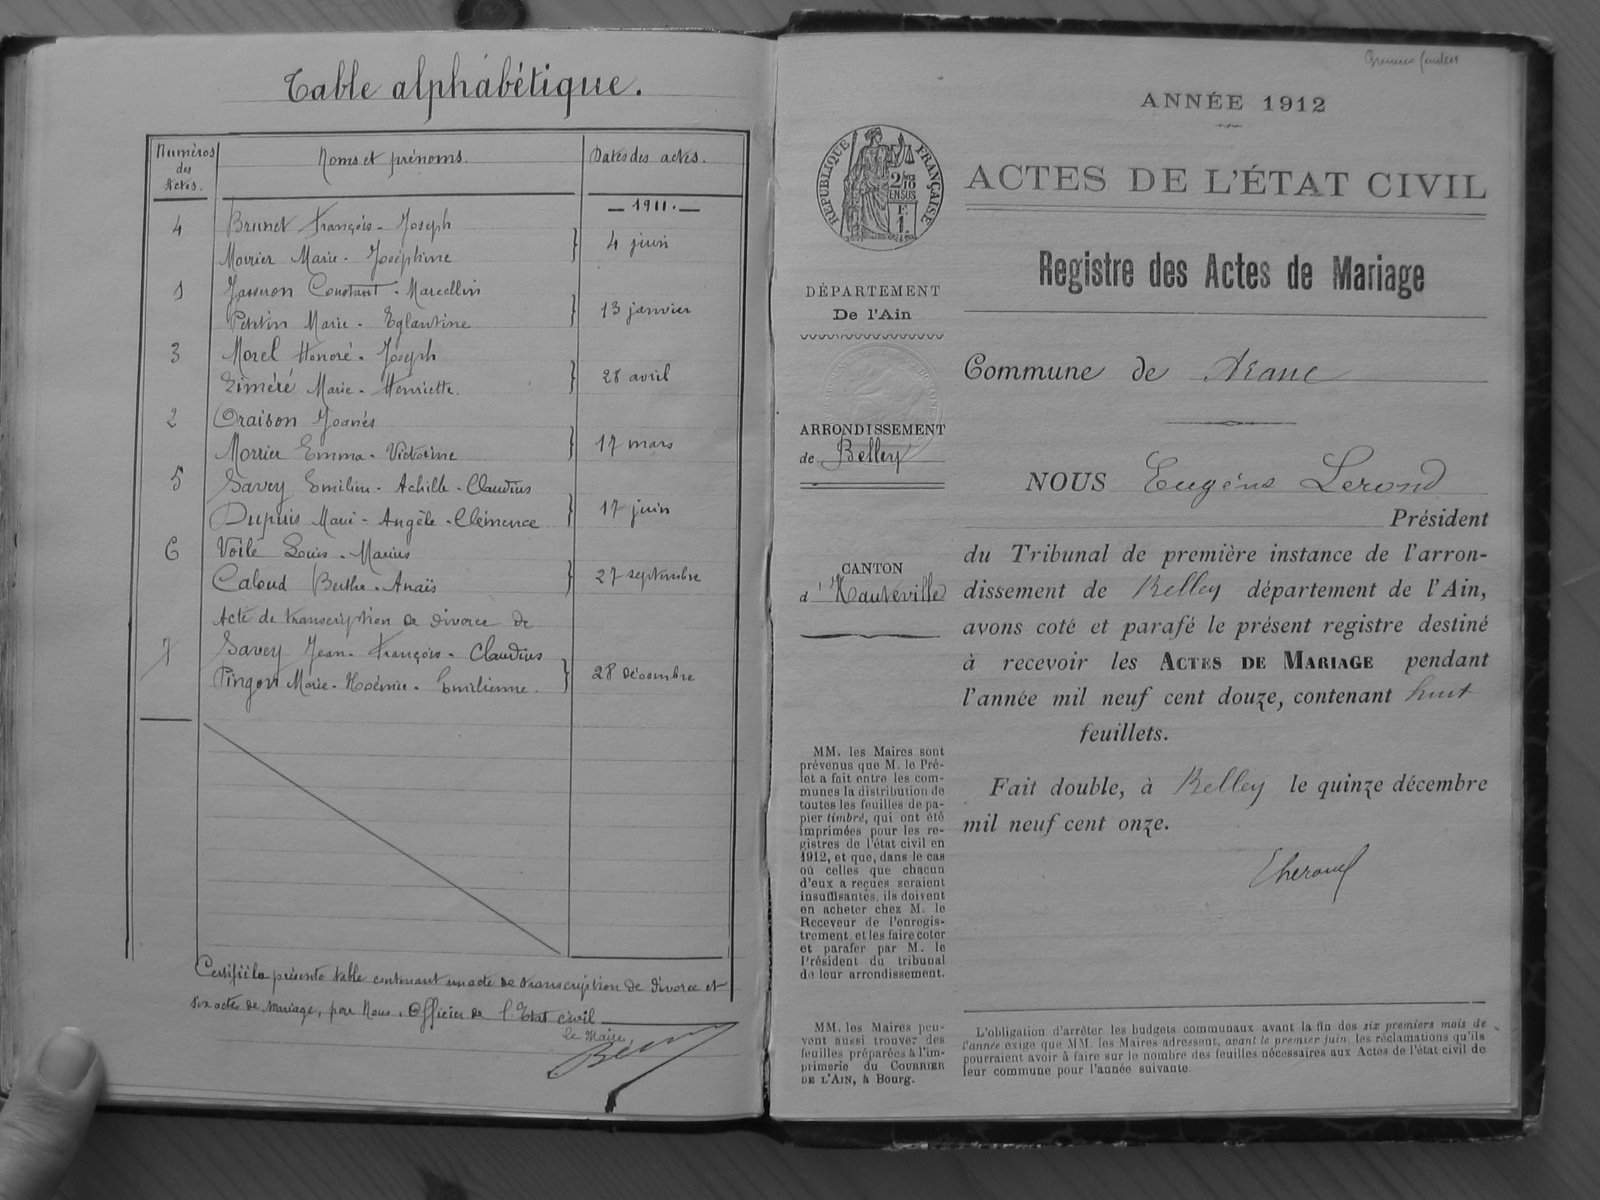 Table alphabétique.
Numéros des Actes.
Noms et prénoms.
Dates des actes.
— 1911. —
4 Brunet François-Joseph
Morrier Marie-Joséphine } 4 juin
1 Jasseron Constant-Marcellin
Petitin Marie-Eglantine } 13 janvier
3 Morel Honoré-Joseph
Marie-Henriette } 28 avril
2 Oraison Joanès
Morrier Emma-Victorine } 17 mars
5 Savey Emilien-Achille-Claudius
Dupuis Marie-Angèle-Clémence } 17 juin
6 Voile Louis-Marius
Caloud Berthe-Anaïs } 27 septembre
Acte de transcription de divorce de
7 Savey Jean-François-Claudius
Pingon Marie-Noémie-Emilienne. } 28 Décembre
Certifié la présente table contenant un acte de transcription de divorce et
six actes de mariage, par Nous, Officier de l'Etat civil
Le Maire,
ANNÉE 1912
ACTES DE L'ÉTAT CIVIL
Registre des Actes de Mariage
RÉPUBLIQUE FRANÇAISE
2/10 EN SUS
F. 1.
DÉPARTEMENT
De l'Ain
ARRONDISSEMENT
de Belley
CANTON
d'Hauteville
Commune de Aranc
NOUS Eugène Lerond
Président
du Tribunal de première instance de l'arron-
dissement de Belley département de l'Ain,
avons coté et parafé le présent registre destiné
à recevoir les ACTES DE MARIAGE pendant
l'année mil neuf cent douze, contenant huit
feuillets.
Fait double, à Belley le quinze décembre
mil neuf cent onze.
MM. les Maires sont
prévenus que M. le Pré-
fet a fait entre les com-
munes la distribution de
toutes les feuilles de pa-
pier timbré, qui ont été
imprimées pour les re-
gistres de l'état civil en
1912, et que, dans le cas
où celles que chacun
d'eux a reçues seraient
insuffisantes, ils doivent
en acheter chez M. le
Receveur de l'enregis-
trement et les faire coter
et parafer par M. le
Président du tribunal
de leur arrondissement.
MM. les Maires peu-
vent aussi trouver des
feuilles préparées à l'im-
primerie du COURRIER
DE L'AIN, à Bourg.
L'obligation d'arrêter les budgets communaux avant la fin des six premiers mois de
l'année exige que MM. les Maires adressent, avant le premier juin, les réclamations qu'ils
pourraient avoir à faire sur le nombre des feuilles nécessaires aux Actes de l'état civil de
leur commune pour l'année suivante.